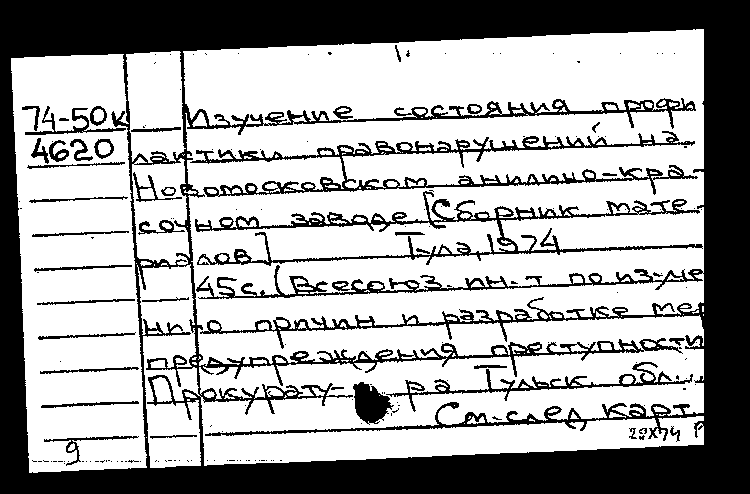 1.
74-50к Изучение состояния профи-
4620 лактики правонарушений на
Новомосковском анилино-кра-
сочном заводе. [Сборник мате-
риалов] Тула, 1974
45с. (Всесоюз. ин-т по из-уче
нию причин и разработке мер
предупреждения преступности
Прокурату- ра Тульск. обл...
См. след. карт.
9 29X74